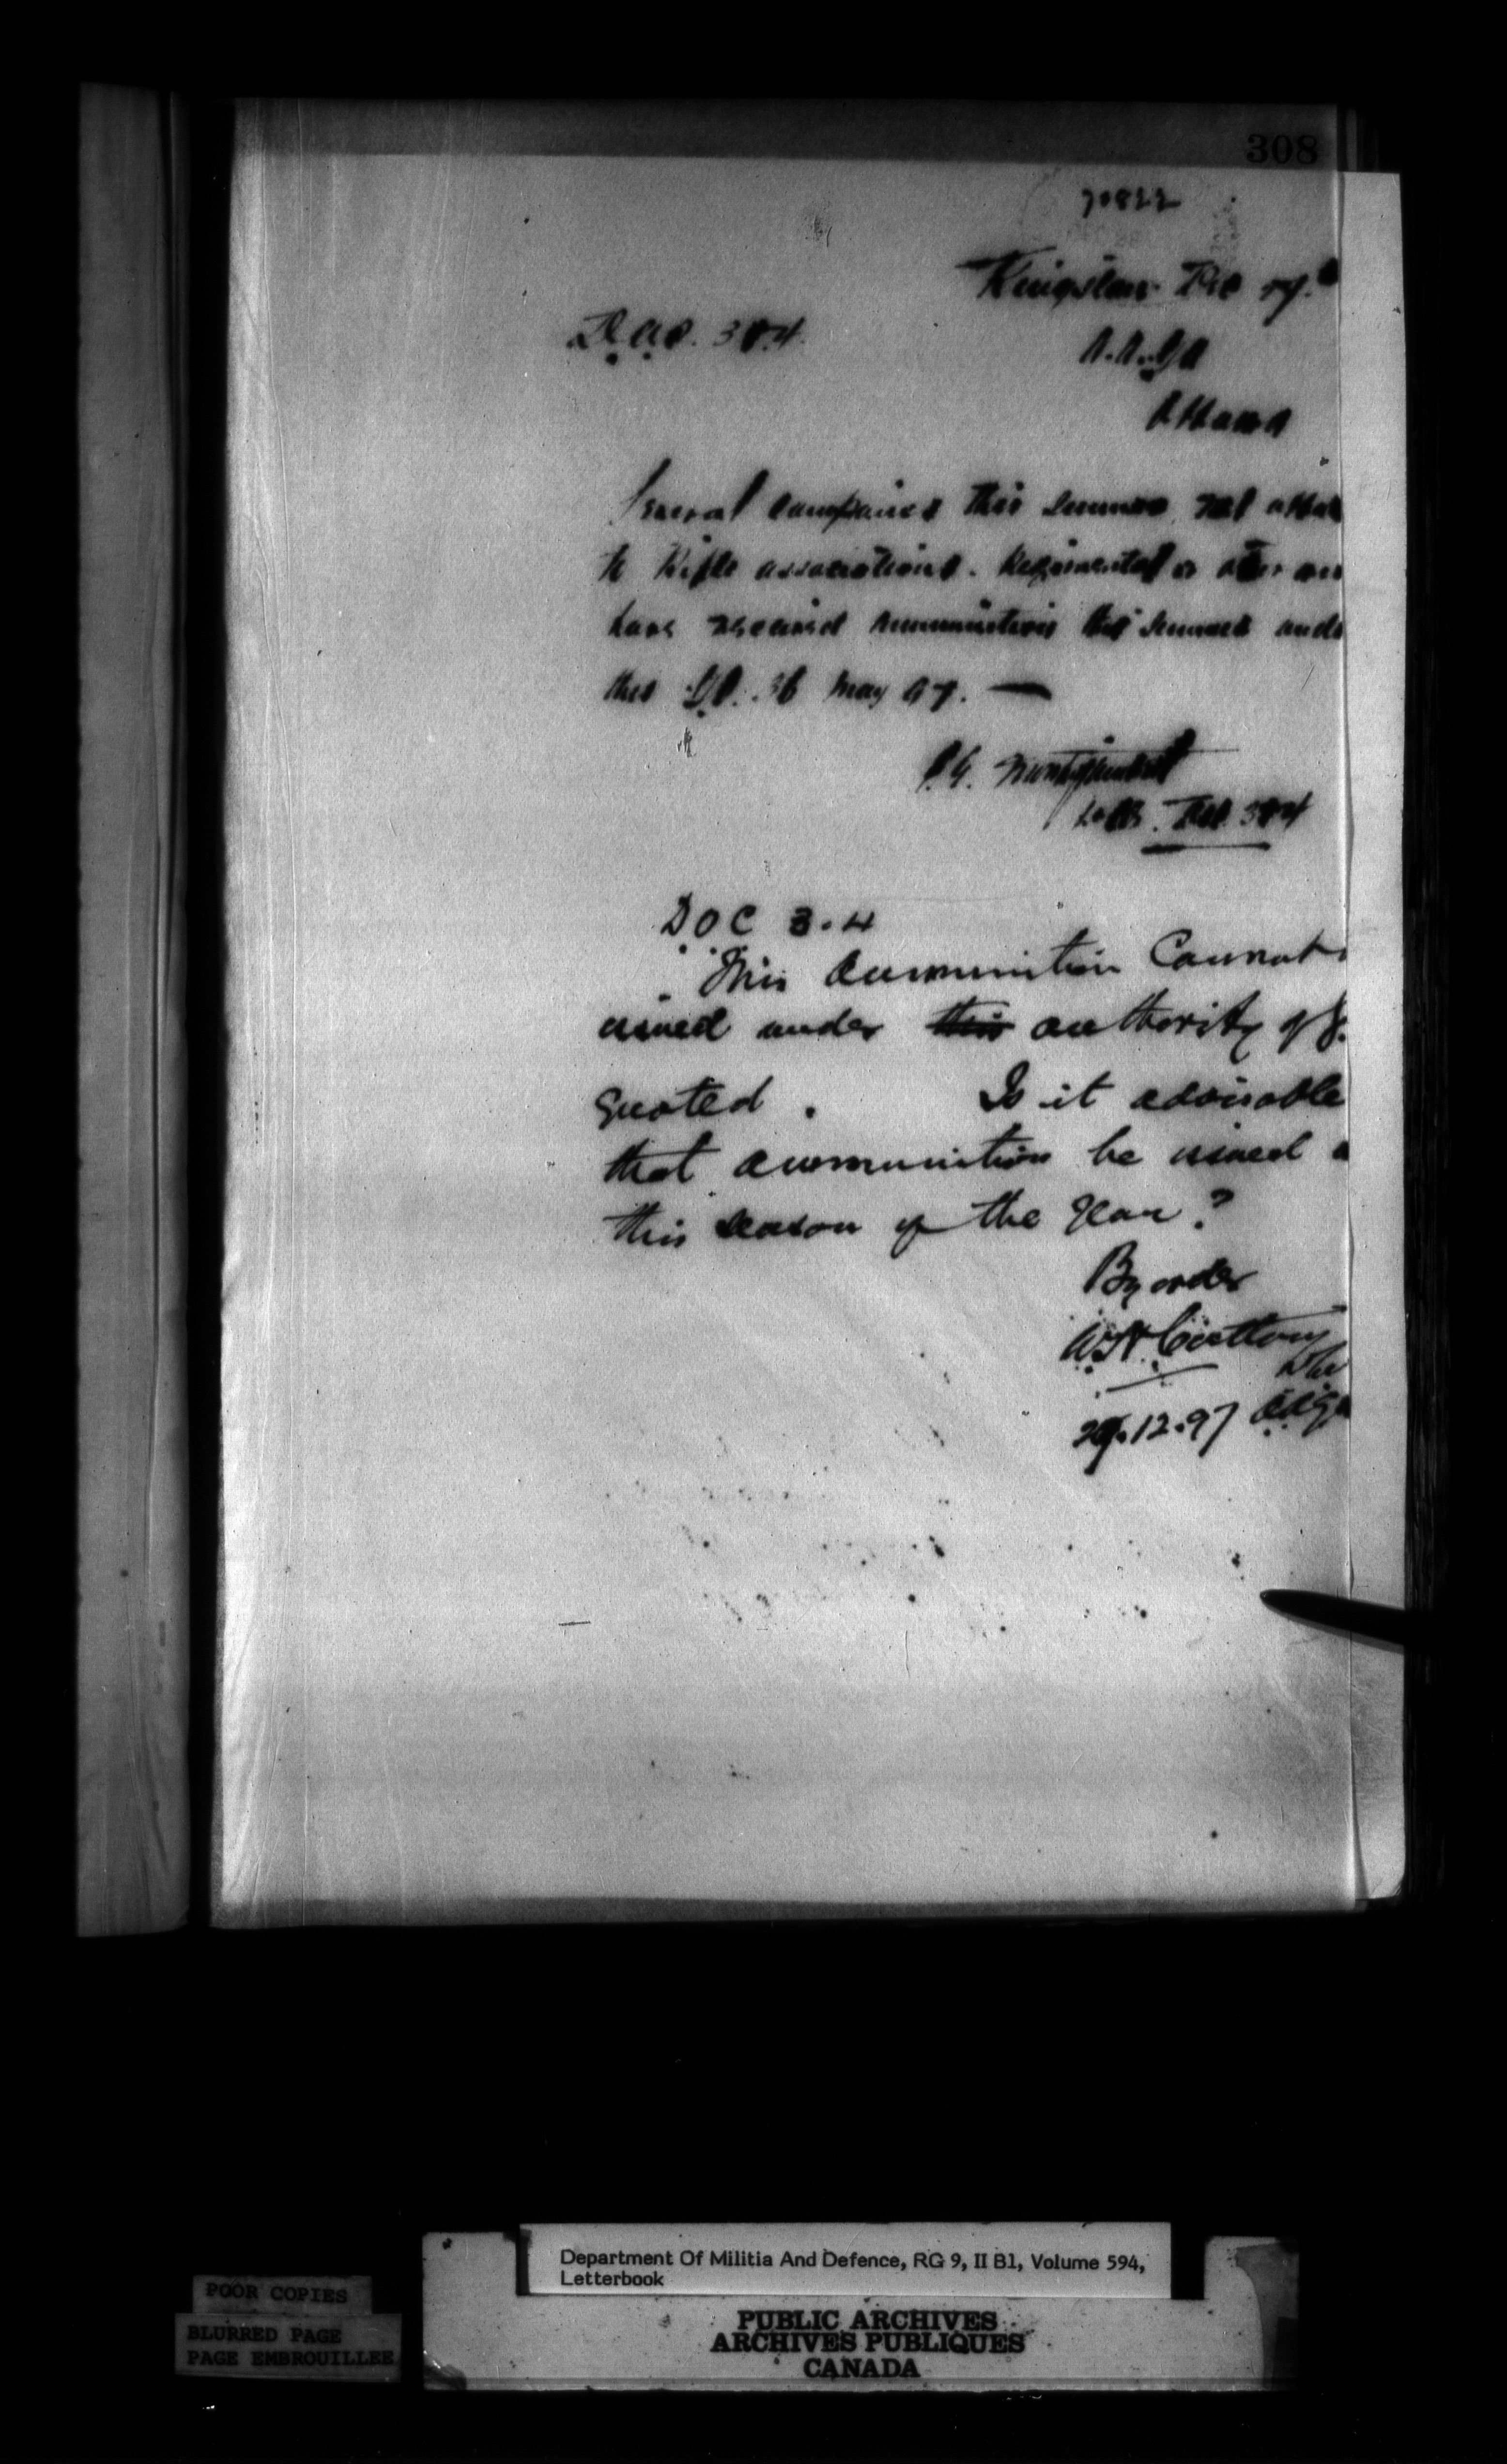 308
70822
Kingston Dec 27.
D.O.C. 3 & 4.
A.A.G.
Ottawa
Several companies this summer not
to Rifle associations. Regimental or other
have received ammunition this summer
this G.O. 36 May 97. —
Lt Col. D.O.C. 3 & 4
D O C 3.4
This Ammunition Cannot
issued under this authority of
quoted. Is it advisable
that ammunition be issued
this season of the year?
By order
29.12.97
Department Of Militia And Defence, RG 9, II B1, Volume 594,
Letterbook
POOR COPIES
BLURRED PAGE
PAGE EMBROUILLEE
PUBLIC ARCHIVES
ARCHIVES PUBLIQUES
CANADA